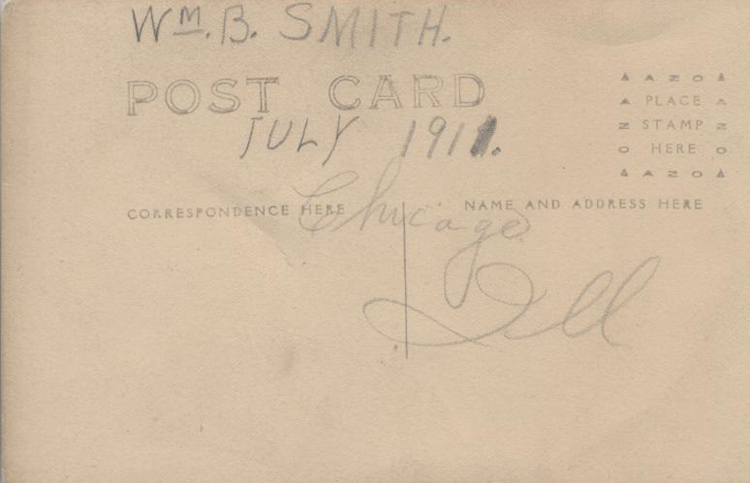 Wᴹ. B. SMITH.
POST CARD
JULY 1911.
CORRESPONDENCE HERE
NAME AND ADDRESS HERE
Chicago
Ill
AZO
PLACE
STAMP
HERE
AZO